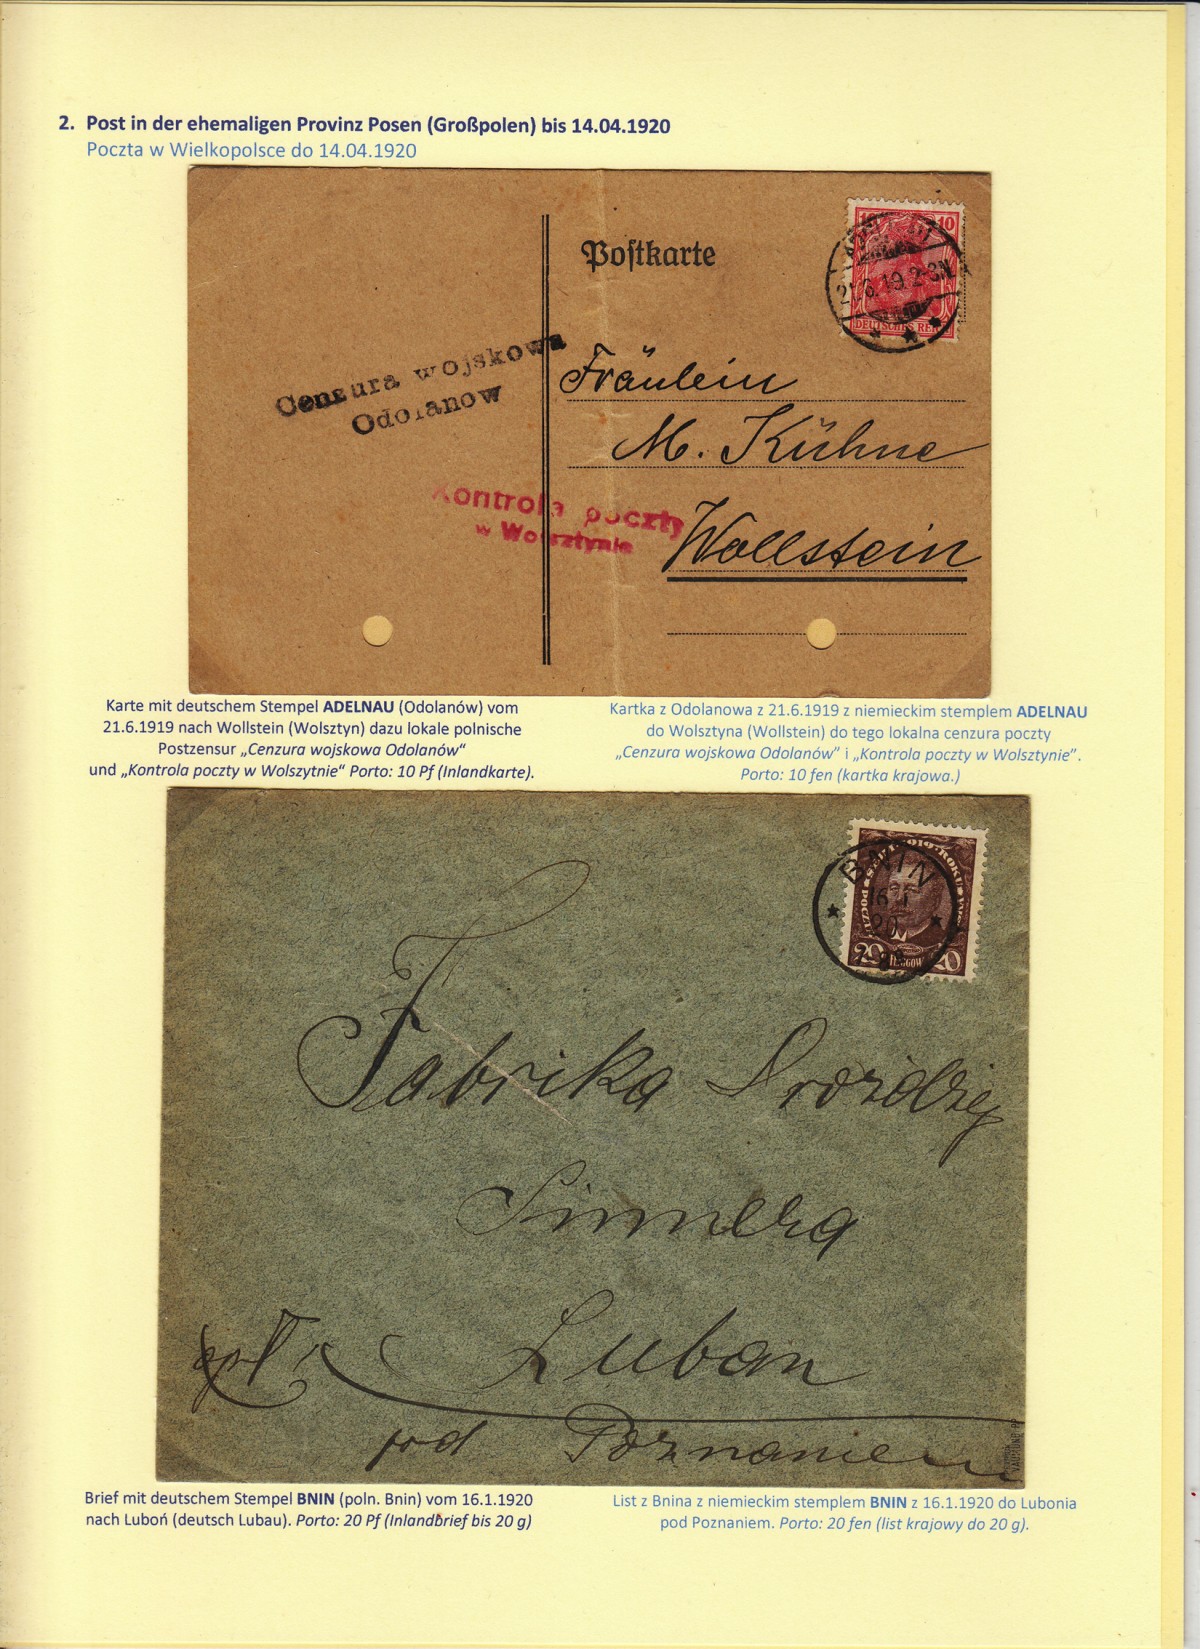 2. Post in der ehemaligen Provinz Posen (Großpolen) bis 14.04.1920
Poczta w Wielkopolsce do 14.04.1920
Postkarte
10
DEUTSCHES REICH
21.6.19.2-3N
Cenzura wojskowa
Odolanow
Fräulein
M. Kühne
Kontrola poczty
w Wolsztynie
Wollstein
Karte mit deutschem Stempel ADELNAU (Odolanów) vom
21.6.1919 nach Wollstein (Wolsztyn) dazu lokale polnische
Postzensur „Cenzura wojskowa Odolanów“
und „Kontrola poczty w Wolszytnie“ Porto: 10 Pf (Inlandkarte).
Kartka z Odolanowa z 21.6.1919 z niemieckim stemplem ADELNAU
do Wolsztyna (Wollstein) do tego lokalna cenzura poczty
„Cenzura wojskowa Odolanów” i „Kontrola poczty w Wolsztynie”.
Porto: 10 fen (kartka krajowa.)
BNIN
16 1
20
20 20
Fabrika Drożdżej
Sinnera
Luban
pod Poznaniem
Brief mit deutschem Stempel BNIN (poln. Bnin) vom 16.1.1920
nach Luboń (deutsch Lubau). Porto: 20 Pf (Inlandbrief bis 20 g)
List z Bnina z niemieckim stemplem BNIN z 16.1.1920 do Lubonia
pod Poznaniem. Porto: 20 fen (list krajowy do 20 g).